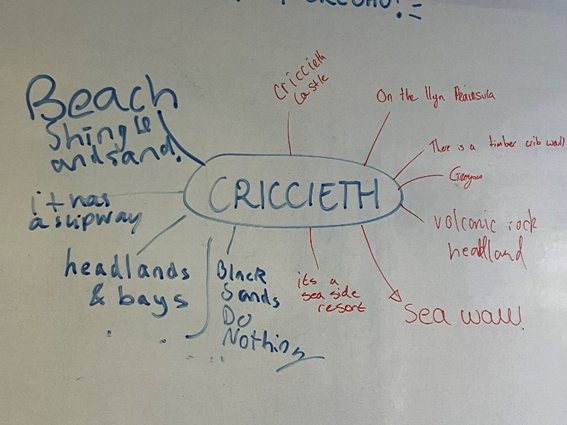 Beach
Shingle
and sand.
it has
a slipway
headlands
& bays
Black
Sands
Do
Nothing
CRICCIETH
Criccieth
Castle
On the llyn Peninsula
There is a timber crib wall
volcanic rock
headland
its a
sea side
resort
sea wall